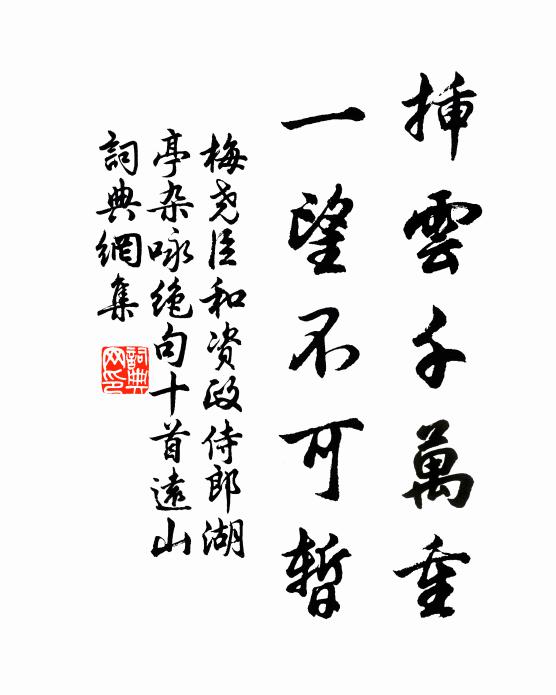 挿雲千萬重
一望不可暫
梅尧臣和资政侍郎湖
亭杂咏绝句十首遠山
詞典網集
詞典网印